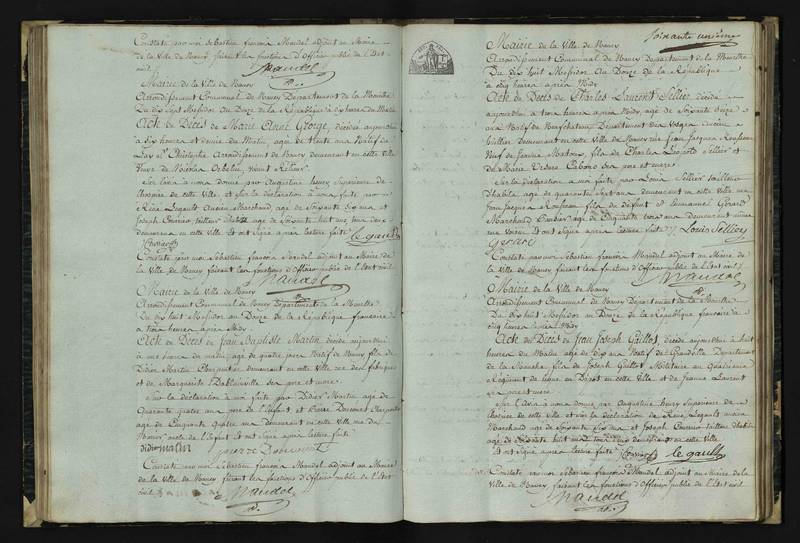 Constaté par moi Sébastien françois Mandel adjoint au Maire
de la Ville de Nancy faisant les fonctions d'officier public de l'Etat
civil
Mandel
Mairie de la Ville de Nancy
Arrondissement Communal de Nancy Département de la Meurthe
Du dix Sept Messidor an Douze de la République à dix heures du Matin
Acte de Décès de Marie Anne George, décédée aujourd'hui
à six heures et demie du Matin, agée de trente ans Natif de
Lay St. Christophe Arrondissement de Nancy demeurant en cette Ville
Sur l'avis à nous donné par Augustine henry Supérieure de
de cette Ville, et sur la déclaration à nous faite par
René Legault Ancien Marchand agé de Soixante Six ans et
Joseph tailleur d'habits agé de Soixante huit ans tous deux
demeurans en cette Ville Et ont Signé après lecture faite
le gault
Constaté par moi Sébastien françois Mandel adjoint au Maire de
la Ville de Nancy faisant les fonctions d'officier public de l'Etat civil
Mandel
Mairie de la Ville de Nancy
Arrondissement Communal de Nancy Département de la Meurthe
Du dix huit Messidor an Douze de la République française
à trois heures après Midy
Acte de Décès de Jean Baptiste Martin décédé aujourd'hui
à une heure du matin, agé de quatre jours Natif de Nancy fils de
Didier Martin Charpentier demeurant en cette Ville rue des fabriques
et de Marguerite ses père et mère
Sur la déclaration à moi faite par Didier Martin agé de
Quarante quatre ans père de l'Enfant et Pierre Charpentier
agé de Cinquante Quatre ans demeurant en cette Ville
Et ont Signé après lecture faite
didiermartin pierre
Constaté par moi Sébastien françois Mandel adjoint au Maire
de la Ville de Nancy faisant les fonctions d'officier public de l'Etat
civil
Mandel
Soixante unième
Mairie de la Ville de Nancy
Arrondissement Communal de Nancy Département de la Meurthe
Du dix huit Messidor An Douze de la République
à cinq heures après Midy
Acte de Décès de Charles Laurent Sellier décédé
aujourd'hui à trois heures après Midy, agé de Soixante
ans Natif de Neufchateau Département des Vosges
demeurant en cette Ville de Nancy rue Jean Jacques Rousseau
Veuf de Jeanne fils de Charles Léopold Sellier et
de Marie ses père et mère
Sur la déclaration à moi faite par Louis Sellier tailleur
d'habits agé de quarante Sept ans demeurant en cette Ville rue
Jean Jacques Rousseau fils du défunt et Emmanuel Gérard
Marchand agé de Cinquante trois ans demeurant même
rue Et ont Signé après lecture faite Louis Sellier
Gerard
Constaté par moi Sébastien françois Mandel adjoint au Maire de
la Ville de Nancy faisant les fonctions d'officier public de l'Etat civil
Mandel
Mairie de la Ville de Nancy
Arrondissement Communal de Nancy Département de la Meurthe
Du dix huit Messidor an Douze de la République française à
cinq heures après Midy
Acte de Décès de Jean Joseph Guillot, décédé aujourd'hui à huit
heures du Matin agé de dix ans Natif de Granville Département
de la Manche, fils de Joseph Guillot Militaire au Quatrième
Régiment de Ligne en Dépôt en cette Ville et de Jeanne Laurent
ses père et mère
Sur l'avis à nous donné par Augustine henry Supérieure de
de cette Ville et sur la déclaration de René Legault ancien
Marchand agé de Soixante Six ans et Joseph tailleur d'habits
agé de Soixante huit ans tous deux demeurans en cette Ville
Et ont Signé après lecture faite le gault
Constaté par moi Sébastien françois Mandel adjoint au Maire de la
Ville de Nancy, faisant les fonctions d'officier public de l'Etat civil
Mandel